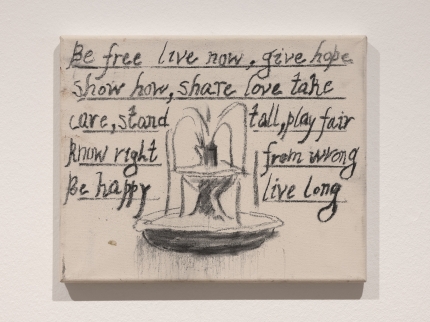 Be free live now, give hope
Show how, share love take
care, stand tall, play fair
know right from wrong
Be happy live long